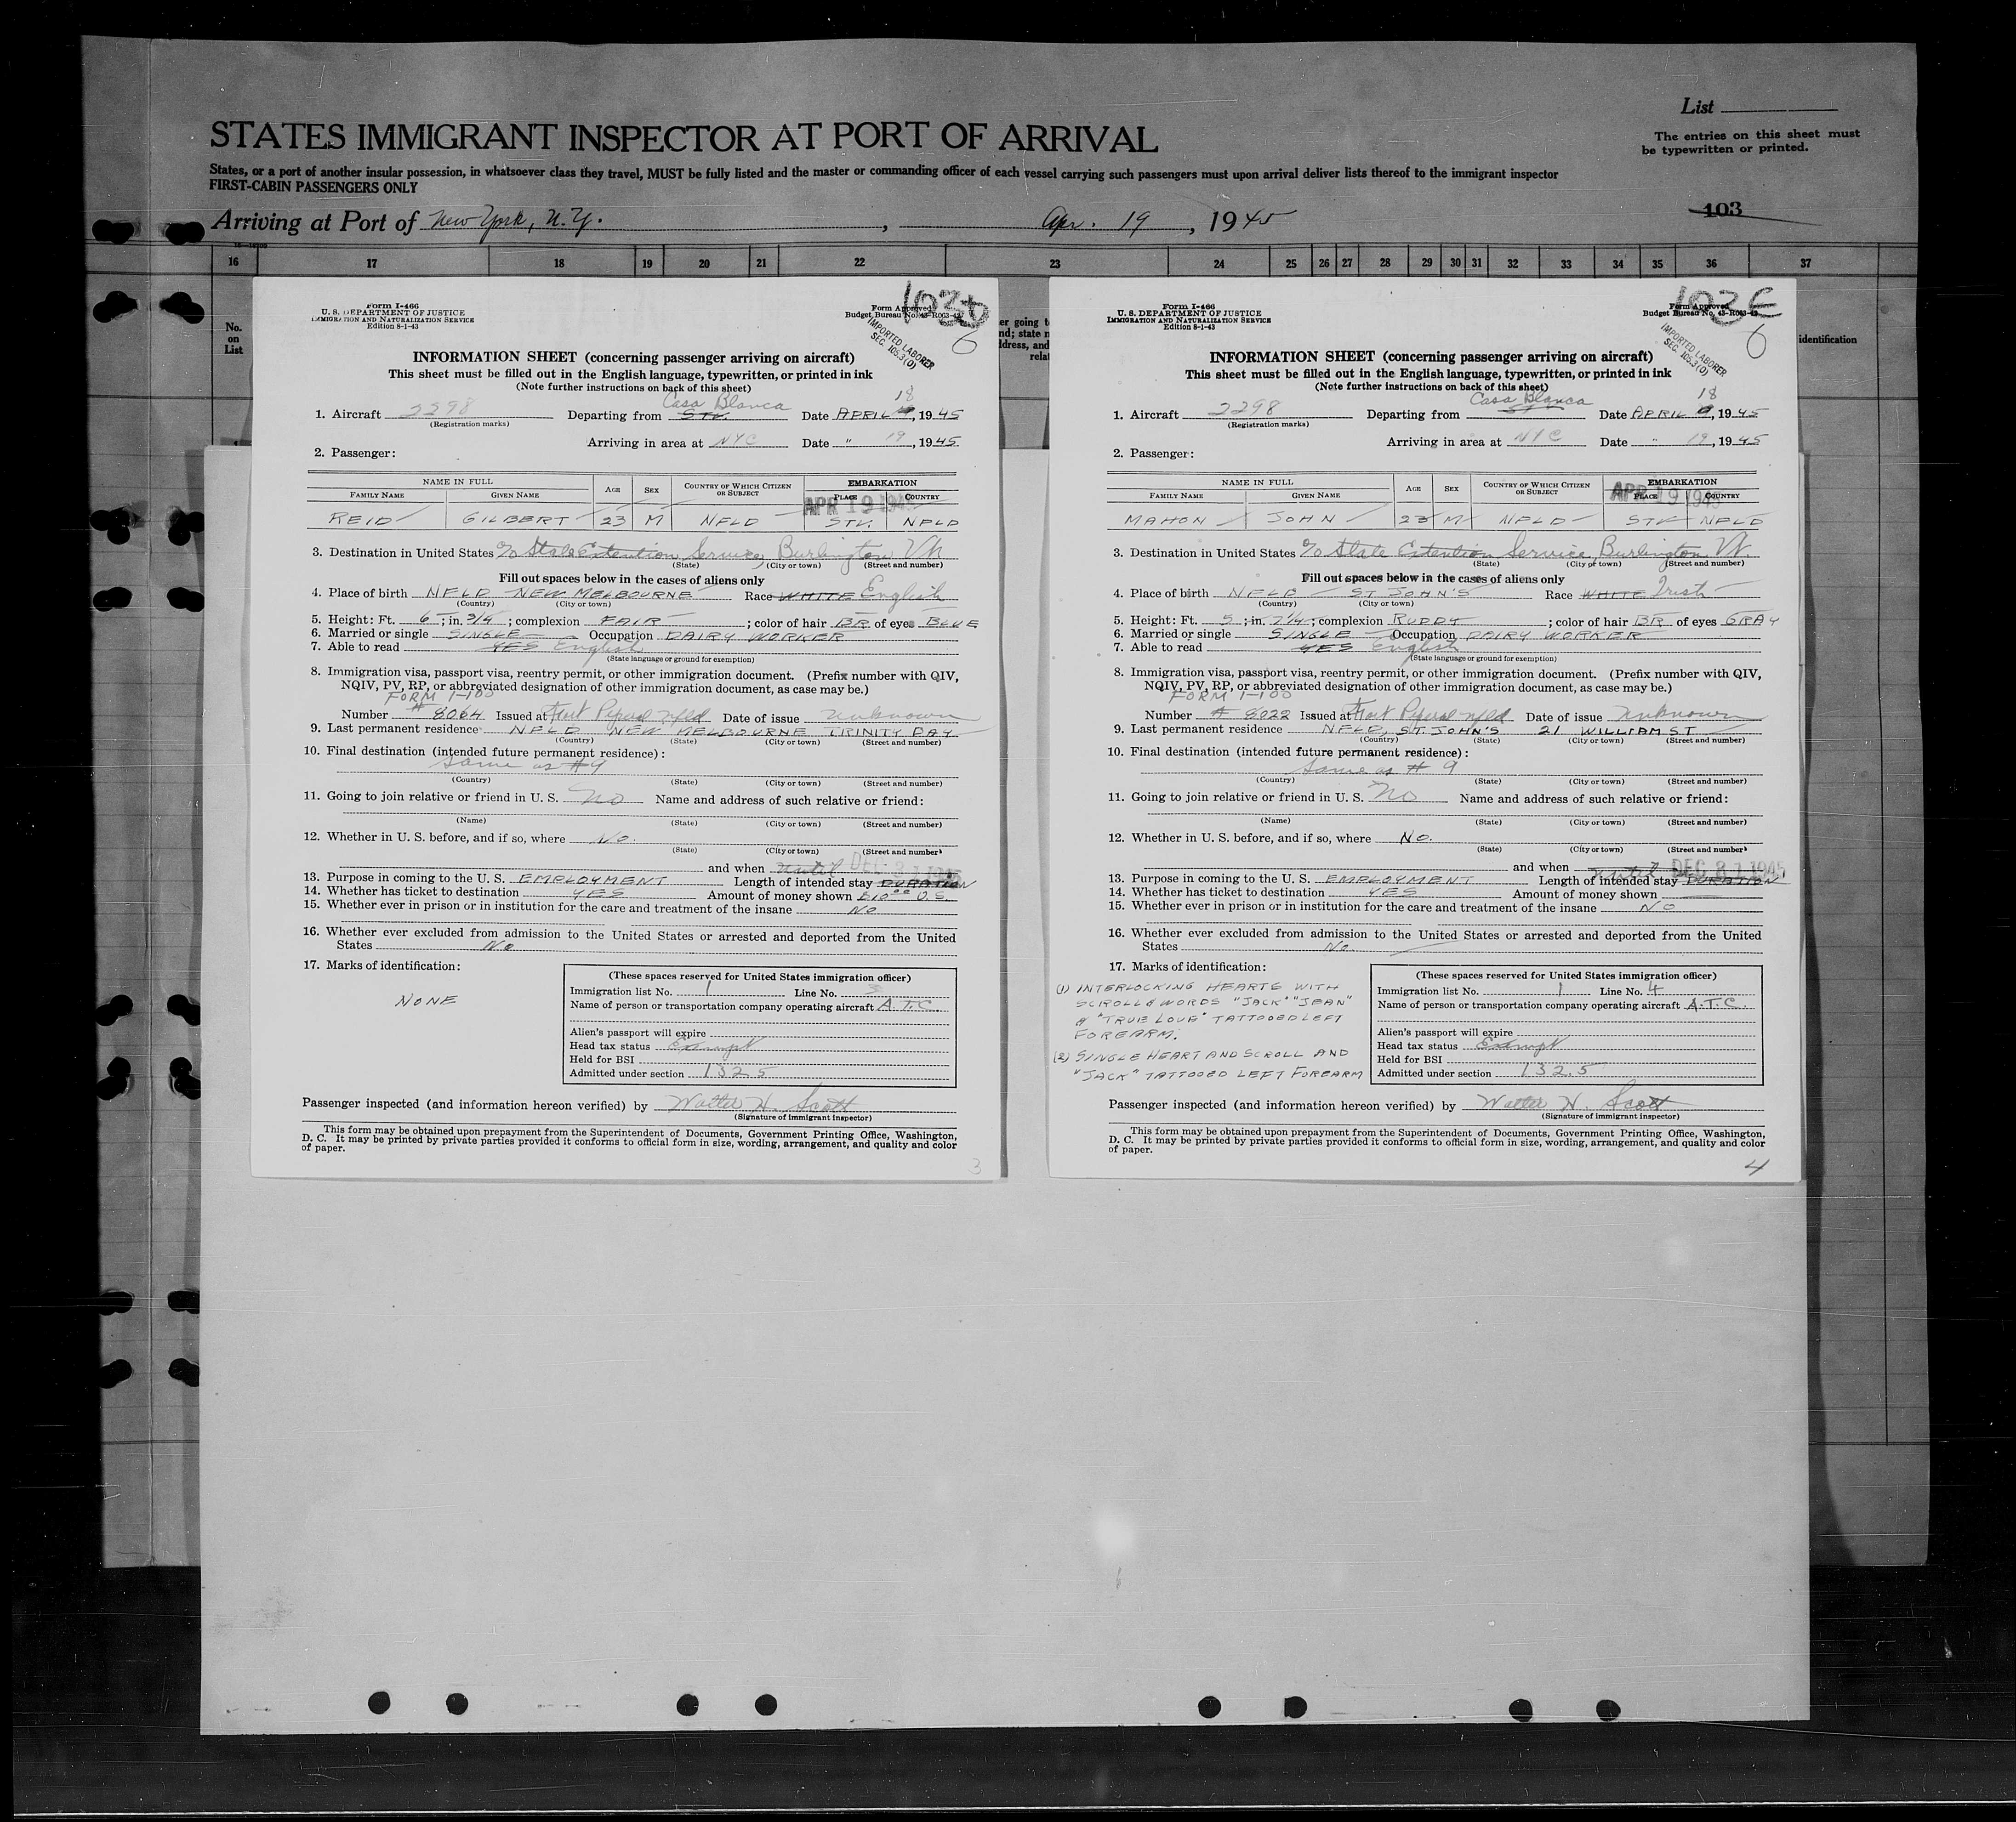 List
STATES IMMIGRANT INSPECTOR AT PORT OF ARRIVAL
The entries on this sheet must
be typewritten or printed.
States, or a port of another insular possession, in whatsoever class they travel, MUST be fully listed and the master or commanding officer of each vessel carrying such passengers must upon arrival deliver lists thereof to the immigrant inspector
FIRST-CABIN PASSENGERS ONLY
Arriving at Port of New York, N.Y. , Apr. 19, 1945
103
16 17 18 19 20 21 22 23 24 25 26 27 28 29 30 31 32 33 34 35 36 37
No.
on
List
identification
Form I-466
U. S. DEPARTMENT OF JUSTICE
IMMIGRATION AND NATURALIZATION SERVICE
Edition 8-1-43
Form Approved
Budget Bureau No. 43-R063-42
IMPORTED LABORER
SEC. 105.3(O)
6
INFORMATION SHEET (concerning passenger arriving on aircraft)
This sheet must be filled out in the English language, typewritten, or printed in ink
(Note further instructions on back of this sheet)
1. Aircraft 2298 Departing from STV. Casa Blanca Date APRIL 18, 1945
(Registration marks)
Arriving in area at NYC Date " 19, 1945
2. Passenger:
NAME IN FULL AGE SEX COUNTRY OF WHICH CITIZEN OR SUBJECT EMBARKATION
FAMILY NAME GIVEN NAME PLACE COUNTRY
APR 19 1945
REID GILBERT 23 M NFLD STV. NFLD
3. Destination in United States c/o State Extention Service, Burlington Vt.
(State) (City or town) (Street and number)
Fill out spaces below in the cases of aliens only
4. Place of birth NFLD NEW MELBOURNE Race WHITE English
(Country) (City or town)
5. Height: Ft. 6; in. 3/4; complexion FAIR; color of hair BR of eyes BLUE
6. Married or single SINGLE Occupation DAIRY WORKER
7. Able to read YES English
(State language or ground for exemption)
8. Immigration visa, passport visa, reentry permit, or other immigration document. (Prefix number with QIV,
NQIV, PV, RP, or abbreviated designation of other immigration document, as case may be.)
FORM I-100
Number # 8064 Issued at Fort Nfld Date of issue unknown
9. Last permanent residence NFLD NEW MELBOURNE TRINITY BAY
(Country) (State) (City or town) (Street and number)
10. Final destination (intended future permanent residence):
Same as #9
(Country) (State) (City or town) (Street and number)
11. Going to join relative or friend in U. S. No Name and address of such relative or friend:
(Name) (State) (City or town) (Street and number)
12. Whether in U. S. before, and if so, where No.
(State) (City or town) (Street and number)
and when until DEC 31 1945
13. Purpose in coming to the U. S. EMPLOYMENT Length of intended stay DURATION
14. Whether has ticket to destination YES Amount of money shown $10.00 U.S.
15. Whether ever in prison or in institution for the care and treatment of the insane NO
16. Whether ever excluded from admission to the United States or arrested and deported from the United
States No
17. Marks of identification:
NONE
(These spaces reserved for United States immigration officer)
Immigration list No. 1 Line No. 3
Name of person or transportation company operating aircraft A.T.C.
Alien's passport will expire
Head tax status Exempt
Held for BSI
Admitted under section 132.5
Passenger inspected (and information hereon verified) by Walter H. Scott
(Signature of immigrant inspector)
This form may be obtained upon prepayment from the Superintendent of Documents, Government Printing Office, Washington,
D. C. It may be printed by private parties provided it conforms to official form in size, wording, arrangement, and quality and color
of paper.
3
Form I-466
U. S. DEPARTMENT OF JUSTICE
IMMIGRATION AND NATURALIZATION SERVICE
Edition 8-1-43
103E
Form Approved
Budget Bureau No. 43-R063-42
IMPORTED LABORER
SEC. 105.3(O)
6
INFORMATION SHEET (concerning passenger arriving on aircraft)
This sheet must be filled out in the English language, typewritten, or printed in ink
(Note further instructions on back of this sheet)
1. Aircraft 2298 Departing from Casa Blanca Date APRIL 18, 1945
(Registration marks)
Arriving in area at NYC Date " 19, 1945
2. Passenger:
NAME IN FULL AGE SEX COUNTRY OF WHICH CITIZEN OR SUBJECT EMBARKATION
FAMILY NAME GIVEN NAME PLACE COUNTRY
APR 19 1945
MAHON JOHN 23 M NFLD STV NFLD
3. Destination in United States c/o State Extention Service, Burlington Vt.
(State) (City or town) (Street and number)
Fill out spaces below in the cases of aliens only
4. Place of birth NFLD ST JOHN'S Race WHITE Irish
(Country) (City or town)
5. Height: Ft. 5; in. 7 1/4; complexion RUDDY; color of hair BR of eyes GRAY
6. Married or single SINGLE Occupation DAIRY WORKER
7. Able to read YES English
(State language or ground for exemption)
8. Immigration visa, passport visa, reentry permit, or other immigration document. (Prefix number with QIV,
NQIV, PV, RP, or abbreviated designation of other immigration document, as case may be.)
FORM I-100
Number # 8022 Issued at Fort Nfld Date of issue unknown
9. Last permanent residence NFLD, ST. JOHN'S 21 WILLIAM ST
(Country) (State) (City or town) (Street and number)
10. Final destination (intended future permanent residence):
Same as # 9
(Country) (State) (City or town) (Street and number)
11. Going to join relative or friend in U. S. No Name and address of such relative or friend:
(Name) (State) (City or town) (Street and number)
12. Whether in U. S. before, and if so, where No.
(State) (City or town) (Street and number)
and when until DEC 31 1945
13. Purpose in coming to the U. S. EMPLOYMENT Length of intended stay DURATION
14. Whether has ticket to destination YES Amount of money shown
15. Whether ever in prison or in institution for the care and treatment of the insane NO
16. Whether ever excluded from admission to the United States or arrested and deported from the United
States No.
17. Marks of identification:
(1) INTERLOCKING HEARTS WITH
SCROLL & WORDS "JACK" "JEAN"
& "TRUE LOVE" TATTOOED LEFT
FOREARM.
(2) SINGLE HEART AND SCROLL AND
"JACK" TATTOOED LEFT FOREARM
(These spaces reserved for United States immigration officer)
Immigration list No. 1 Line No. 4
Name of person or transportation company operating aircraft A.T.C.
Alien's passport will expire
Head tax status Exempt
Held for BSI
Admitted under section 132.5
Passenger inspected (and information hereon verified) by Walter H. Scott
(Signature of immigrant inspector)
This form may be obtained upon prepayment from the Superintendent of Documents, Government Printing Office, Washington,
D. C. It may be printed by private parties provided it conforms to official form in size, wording, arrangement, and quality and color
of paper.
4